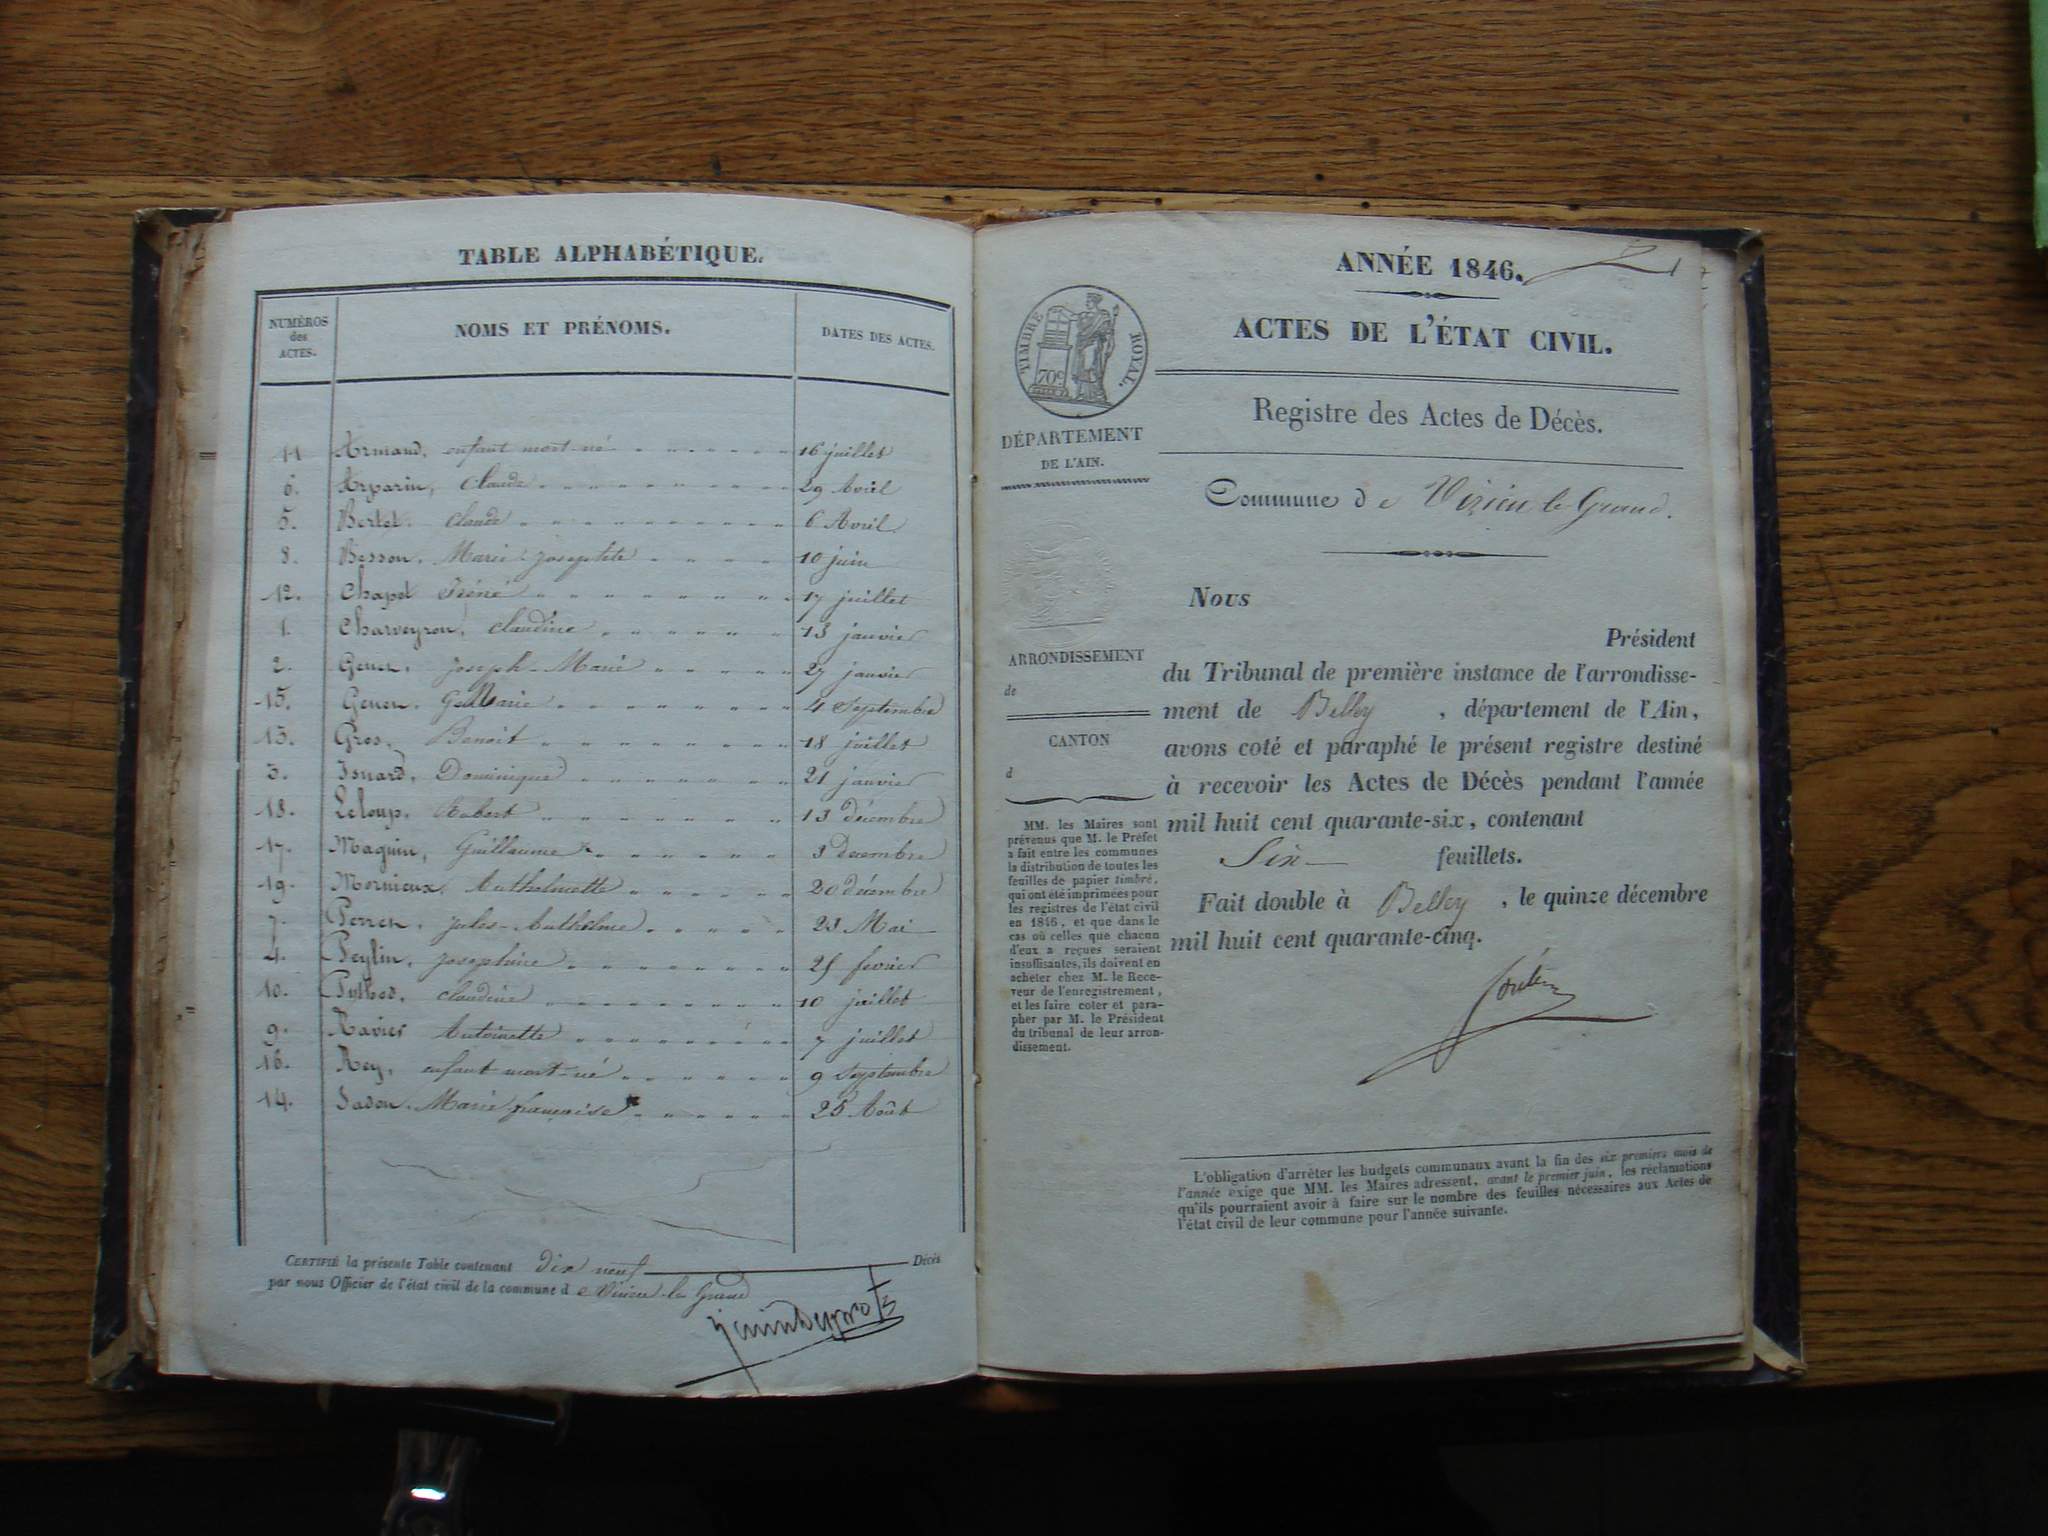 TABLE ALPHABÉTIQUE.
NUMÉROS des ACTES. NOMS ET PRÉNOMS. DATES DES ACTES.
11 Armand, enfant mort-né 16 juillet
6. Arparin, Claude 29 Avril
5. Bertet. Claude 6 Avril
8. Besson. Marie-josephte 10 juin
12. Chapel Iréné 17 juillet
1. Charveyron, Claudine 13 janvier
2. joseph-Marie 27 janvier
15. 4 Septembre
13. Gros, Benoit 18 juillet
3. Isnard, Dominique 21 janvier
18. Leloup. 13 décembre
17. Maguin, Guillaume 3 Decembre
19. Mornieux, Anthelmette 20 décembre
7. Perret, jules-Anthelme 23 Mai
4. Peylin, josephine 25 fevrier
10. claudine 10 juillet
9. Ravier Antoinette 7 juillet
16. Rey, enfant mort-né 9 Septembre
14. Marie françoise 25 Août
CERTIFIÉ la présente Table contenant dix neuf Décès
par nous Officier de l'état civil de la commune de Virieu-le Grand
ANNÉE 1846.
ACTES DE L'ÉTAT CIVIL.
Registre des Actes de Décès.
Commune de Virieu le Grand.
TIMBRE ROYAL.
70c
DÉPARTEMENT
DE L'AIN.
ARRONDISSEMENT
de
CANTON
d
MM. les Maires sont
prévenus que M. le Préfet
a fait entre les communes
la distribution de toutes les
feuilles de papier timbré,
qui ont été imprimées pour
les registres de l'état civil
en 1846, et que dans le
cas où celles que chacun
d'eux a reçues seraient
insuffisantes, ils doivent en
acheter chez M. le Rece-
veur de l'enregistrement,
et les faire coter et para-
pher par M. le Président
du tribunal de leur arron-
dissement.
Nous
Président
du Tribunal de première instance de l'arrondisse-
ment de Belley, département de l'Ain,
avons coté et paraphé le présent registre destiné
à recevoir les Actes de Décès pendant l'année
mil huit cent quarante-six, contenant
Six feuillets.
Fait double à Belley, le quinze décembre
mil huit cent quarante-cinq.
L'obligation d'arrêter les budgets communaux avant la fin des six premiers mois de
l'année exige que MM. les Maires adressent, avant le premier juin, les réclamations
qu'ils pourraient avoir à faire sur le nombre des feuilles nécessaires aux Actes de
l'état civil de leur commune pour l'année suivante.